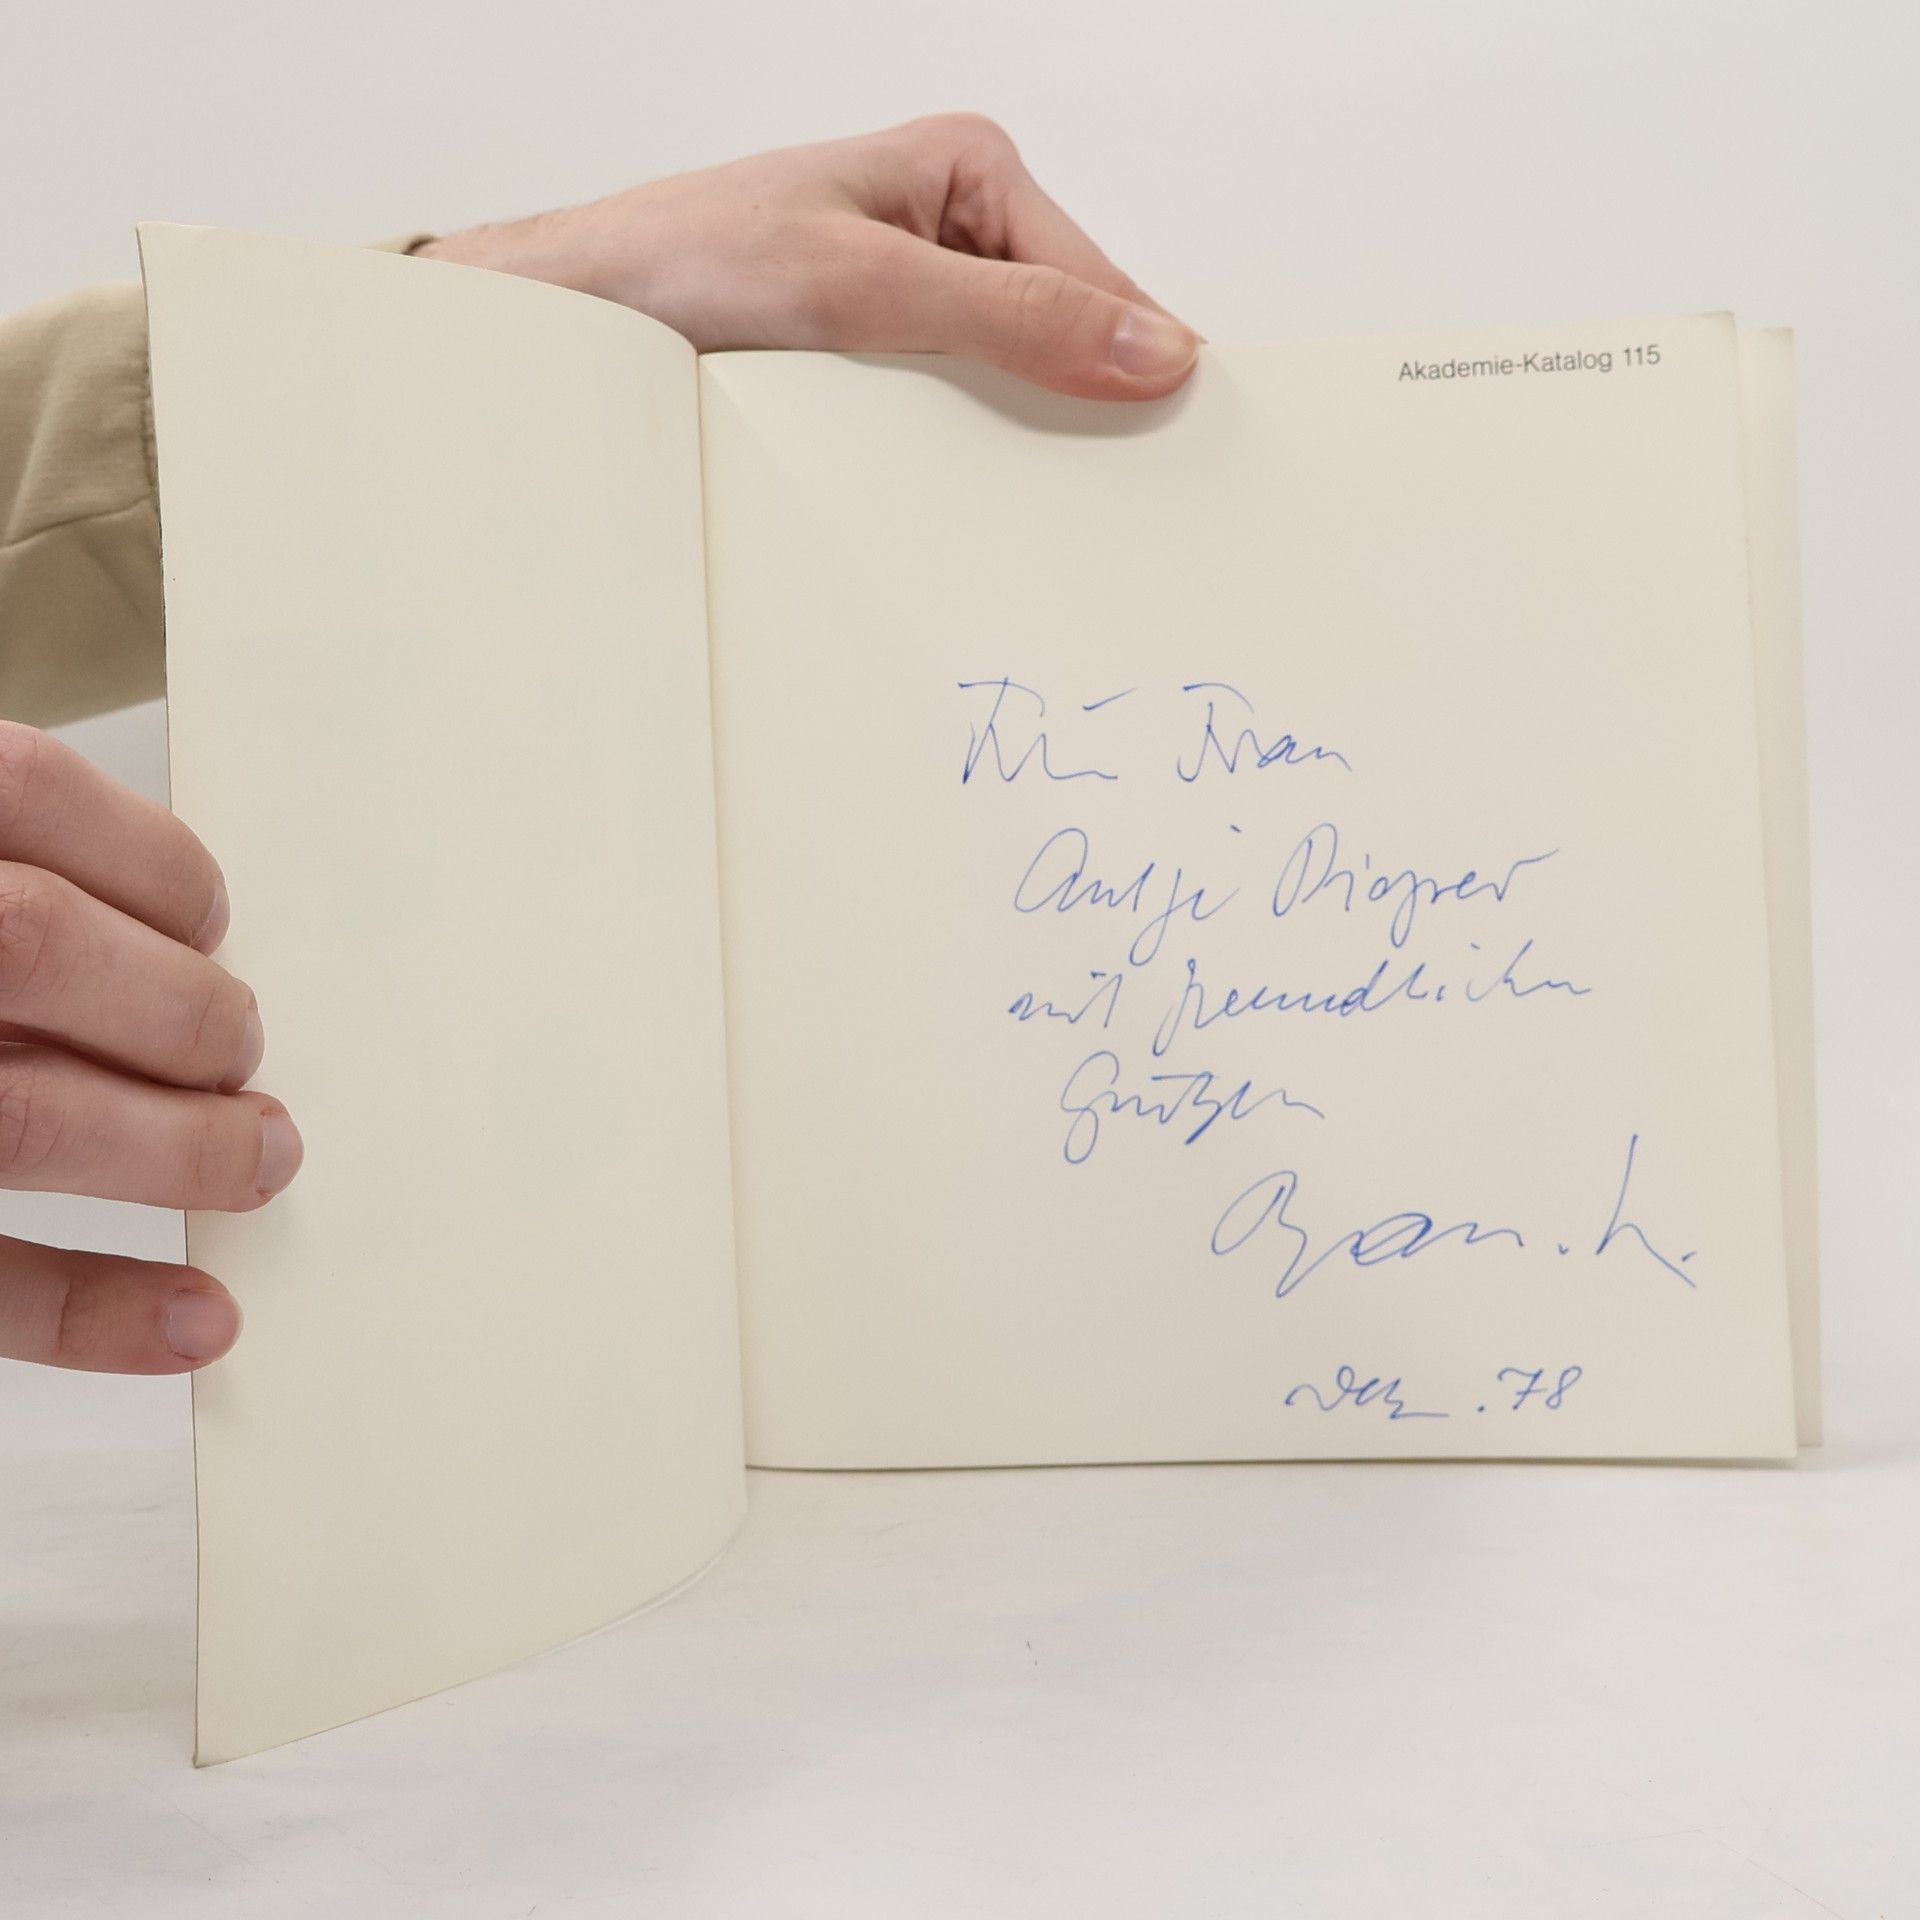 Akademie-Katalog 115
Für Frau
Antje
mit freundlichen
Grüßen
Dez. 78